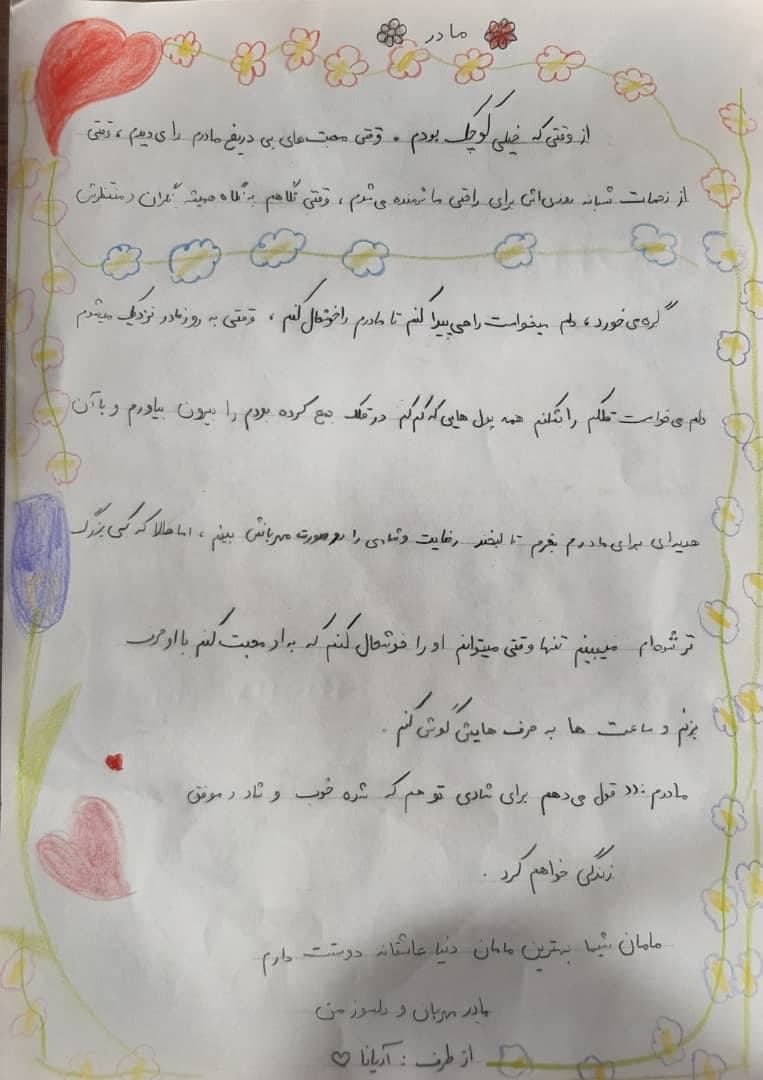 مادر
از وقتی که خیلی کوچک بودم . وقتی محبت های بی دریغ مادرم را می دیدم ، وقتی
از زحمات شبانه روزی اش برای راحتی ما شرمنده می شدم ، وقتی نگاهم به نگاه همیشه نگران و منتظرش
گره می خورد ، دلم میخواست راهی پیدا کنم تا مادرم را خوشحال کنم ، وقتی به روز مادر نزدیک میشدم
دلم می خواست قلکم را بشکنم همه پول هایی که کم کم در قلک جمع کرده بودم را بیرون بیاورم و با آن
هدیه ای برای مادرم بخرم تا لبخند رضایت و شادی را بر صورت مهربانش ببینم ، اما حالا که کمی بزرگ
تر شده ام میبینم تنها وقتی میتوانم او را خوشحال کنم که به او محبت کنم با او حرف
بزنم و ساعت ها به حرف هایش گوش کنم .
مادرم : قول می دهم برای شادی تو هم که شده خوب و شاد و موفق
زندگی خواهم کرد .
مامان شیما بهترین مامان دنیا عاشقانه دوستت دارم
مادر مهربان و دلسوز من
از طرف : آریانا ♡